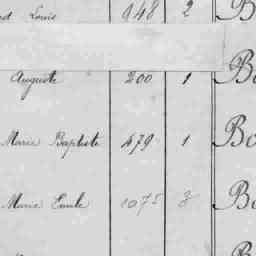 Louis 148 2 B
Auguste 200 1 Bo
Marie Baptiste 479 1 Bo
Marie Emile 1075 3 Bo
B